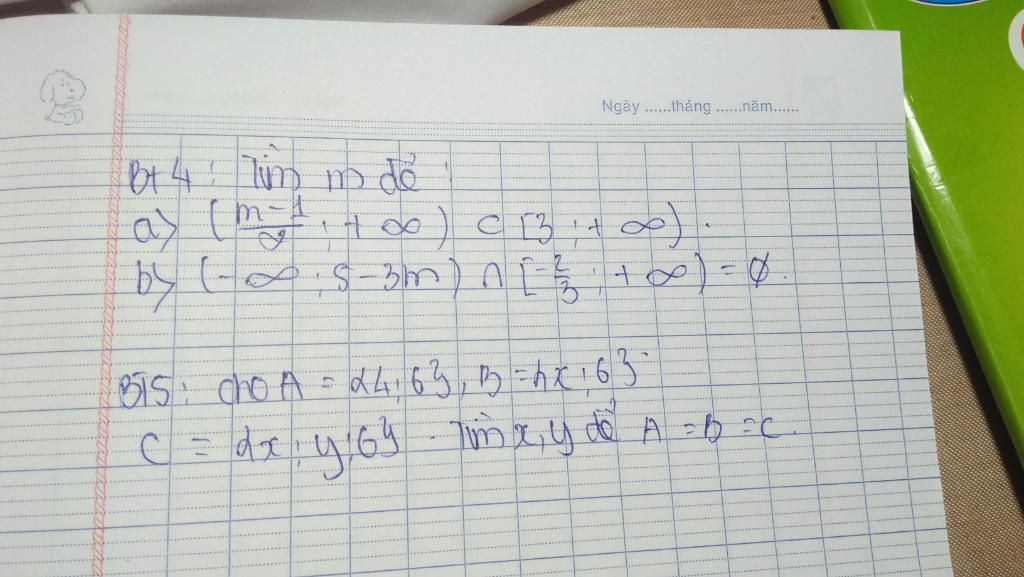 Ngày ......tháng ......năm......
Bt 4 : Tìm m để :
a> (m-1/2 ; +∞) ⊂ [3 ; +∞).
b> (-∞ ; 5-3m) ∩ [-2/3 ; +∞) = ∅.
BT5 : cho A = {4 ; 6}, B = {x ; 6}
C = {x ; y ; 6} . Tìm x, y để A = B = C.